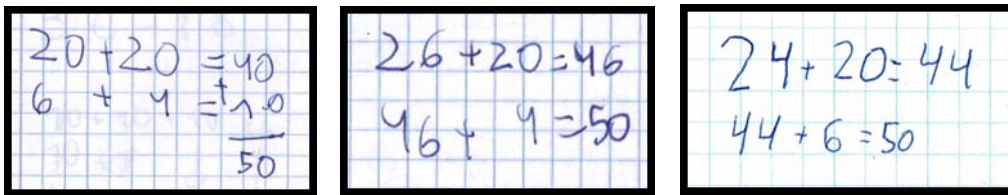 20+20=40
6 + 4 = +10
50
26+20=46
46+ 4=50
24+20=44
44+6=50